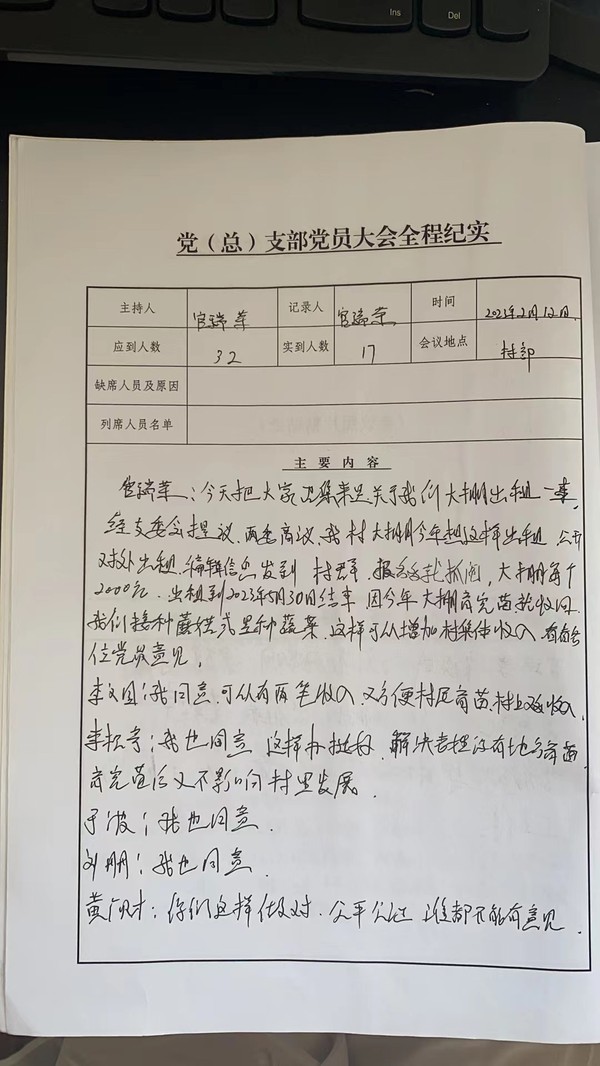 Ins
Del
党（总）支部党员大会全程纪实
主持人 官瑞苹 记录人 官瑞苹 时间 2023年2月12日
应到人数 32 实到人数 17 会议地点 村部
缺席人员及原因
列席人员名单
主要内容
官瑞苹：今天把大家召集来是关于我们大棚出租一事，
经支委会提议、两委商议，我村大棚今年把这样出租，公开
对外出租，编辑信息发到村群，报名抓阄，大棚每个
2000元，出租到2023年5月30日结束，因今年大棚育完苗就收回
我们接种蔬菜，这样可以增加村集体收入，看看各
位党员意见。
李文国：我同意，可以有两笔收入，又方便村民育苗，村上又收入
李松奇：我也同意，这样办挺好，解决老百姓没有地方育苗
育完苗后又不影响村里发展。
于波：我也同意。
刘朋：我也同意。
黄广才：你们这样做对，公平公正，谁都不能有意见。